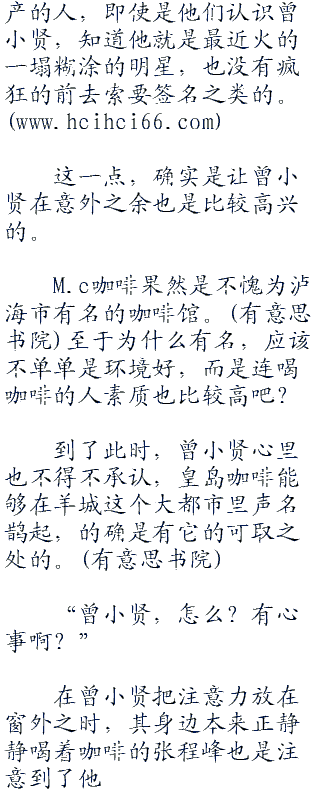 产的人，即使是他们认识曾
小贤，知道他就是最近火的
一塌糊涂的明星，也没有疯
狂的前去索要签名之类的。
(www.hcihci66.com)
这一点，确实是让曾小
贤在意外之余也是比较高兴
的。
M.c咖啡果然是不愧为泸
海市有名的咖啡馆。(有意思
书院)至于为什么有名，应该
不单单是环境好，而是连喝
咖啡的人素质也比较高吧？
到了此时，曾小贤心里
也不得不承认，皇岛咖啡能
够在羊城这个大都市里声名
鹊起，的确是有它的可取之
处的。(有意思书院)
“曾小贤，怎么？有心
事啊？”
在曾小贤把注意力放在
窗外之时，其身边本来正静
静喝着咖啡的张程峰也是注
意到了他